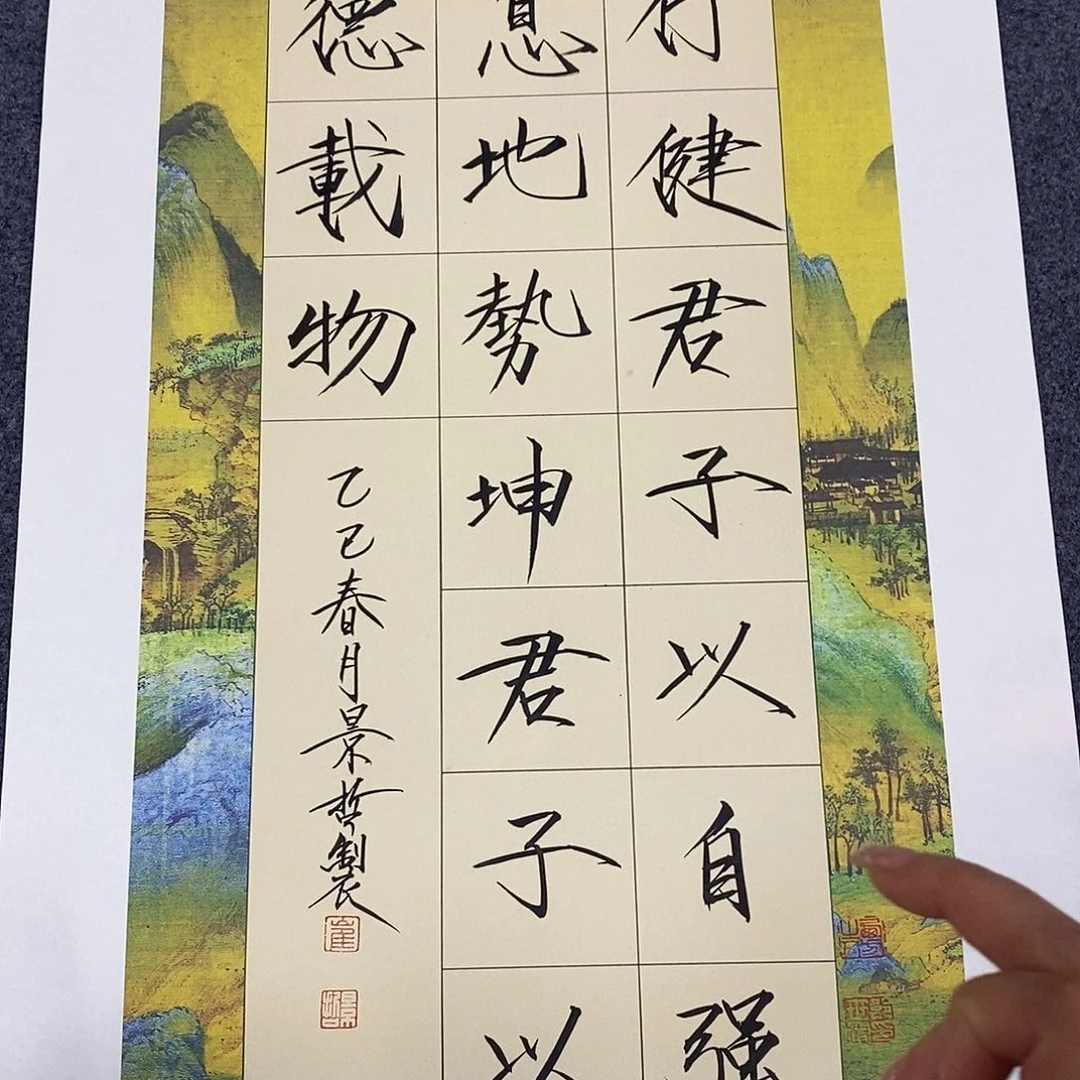 行健君子以自强
息地勢坤君子以
德載物
乙巳春月景哲製
崔
景哲